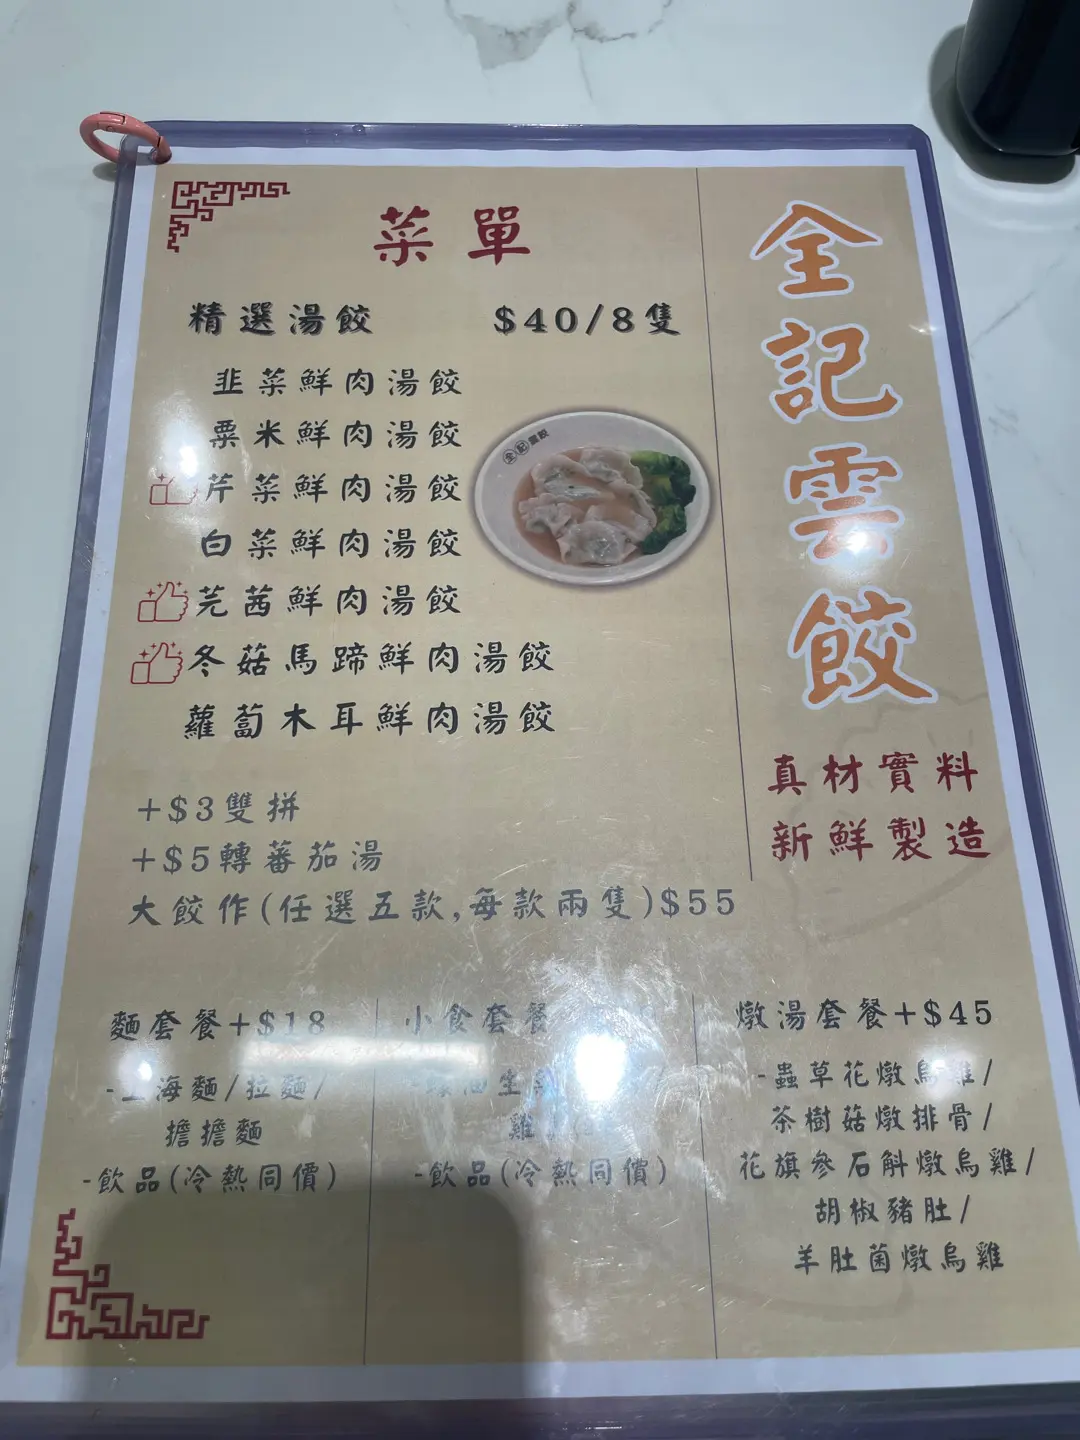 菜單
精選湯餃 $40/8隻
韭菜鮮肉湯餃
粟米鮮肉湯餃
芹菜鮮肉湯餃
白菜鮮肉湯餃
芫茜鮮肉湯餃
冬菇馬蹄鮮肉湯餃
蘿蔔木耳鮮肉湯餃
+$3雙拼
+$5轉蕃茄湯
大餃作(任選五款,每款兩隻)$55
全記雲餃
真材實料
新鮮製造
麵套餐+$18
-上海麵/拉麵/
擔擔麵
-飲品(冷熱同價)
小食套餐
-飲品(冷熱同價)
燉湯套餐+$45
-蟲草花燉烏雞/
茶樹菇燉排骨/
花旗參石斛燉烏雞/
胡椒豬肚/
羊肚菌燉烏雞